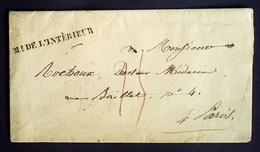 Mre DE L'INTÉRIEUR
a Monsieur
Rochoux, Docteur Médecin
rue Baillet, N° 4.
à Paris